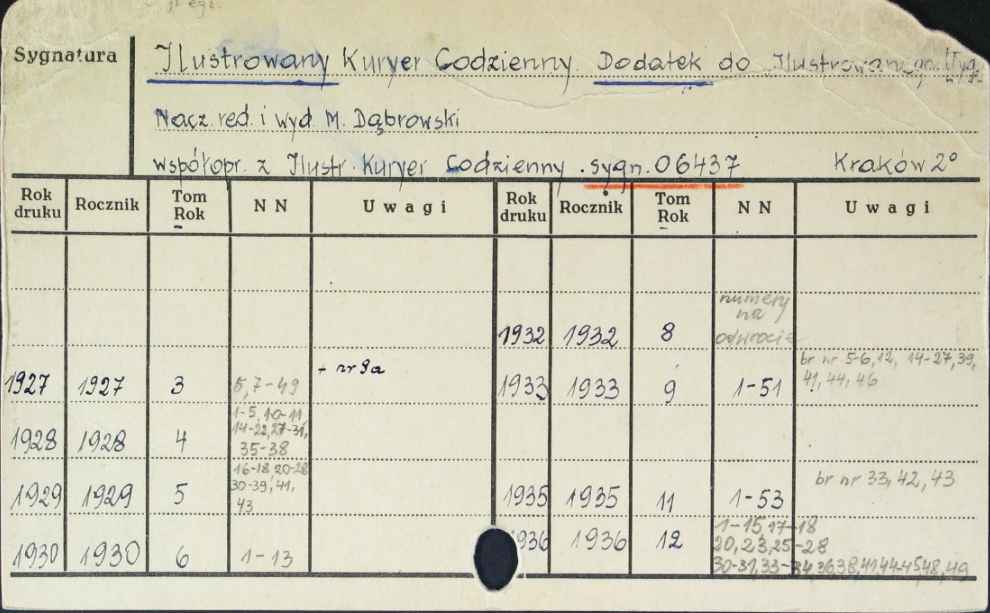 Sygnatura
Ilustrowany Kuryer Codzienny. Dodatek do "Ilustrowan.
Nacz. red. i wyd M. Dąbrowski
współopr. z Ilustr. Kuryer Codzienny. sygn. 06437 Kraków 2°
Rok druku Rocznik Tom Rok NN Uwagi Rok druku Rocznik Tom Rok NN Uwagi
1932 1932 8 numery na odwrocie
1927 1927 3 5,7-49 + nr 9a 1933 1933 9 1-51 br nr 5-6,12, 14-27,39, 41,44,46
1928 1928 4 1-5, 10-11, 14-22,27-31, 35-38
1929 1929 5 16-18, 20-28 30-39, 41, 43 1935 1935 11 1-53 br nr 33, 42, 43
1930 1930 6 1-13 1936 1936 12 1-15,17-18 20,23,25-28 30-31,33-34,36,38,41,44-45,48,49